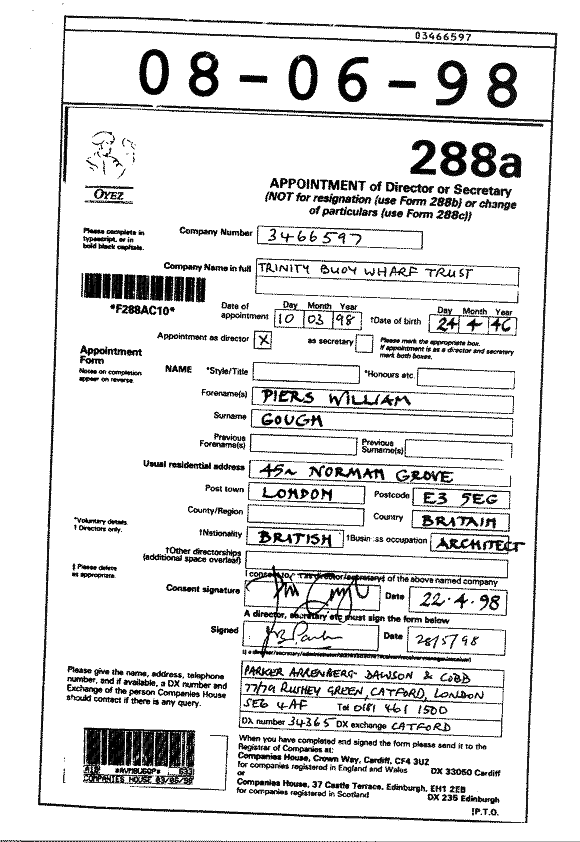 03466597
08-06-98
288a
OYEZ
APPOINTMENT of Director or Secretary
(NOT for resignation (use Form 288b) or change
of particulars (use Form 288c))
Please complete in
typescript, or in
bold black capitals.
Company Number 3466597
Company Name in full TRINITY BUOY WHARF TRUST
*F288AC10*
Day Month Year
Date of appointment 10 03 98
Day Month Year
†Date of birth 24 4 46
Appointment as director X as secretary
Please mark the appropriate box.
If appointment is as a director and secretary
mark both boxes.
Appointment
Form
Notes on completion
appear on reverse.
NAME *Style/Title *Honours etc.
Forename(s) PIERS WILLIAM
Surname GOUGH
Previous Forename(s) Previous Surname(s)
Usual residential address NORMAN GROVE
Post town LONDON Postcode E3 5EG
County/Region Country BRITAIN
*Voluntary details.
† Directors only.
†Nationality BRITISH †Business occupation ARCHITECT
†Other directorships
(additional space overleaf)
‡ Please delete
as appropriate.
I consent to act as director/secretary‡ of the above named company
Consent signature Date 22.4.98
A director, secretary etc must sign the form below
Signed Date 28/5/98
Please give the name, address, telephone
number, and if available, a DX number and
Exchange of the person Companies House
should contact if there is any query.
PARKER ARRENBERG DAWSON & COBB
77/79 RUSHEY GREEN, CATFORD, LONDON
SE6 4AF Tel 0181 461 1500
DX number 34365 DX exchange CATFORD
COMPANIES HOUSE 03/06/98
When you have completed and signed the form please send it to the
Registrar of Companies at:
Companies House, Crown Way, Cardiff, CF4 3UZ
for companies registered in England and Wales DX 33050 Cardiff
or
Companies House, 37 Castle Terrace, Edinburgh, EH1 2EB
for companies registered in Scotland DX 235 Edinburgh
P.T.O.